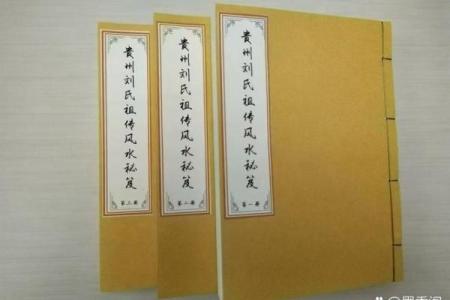 貴州刘氏祖传风水秘笈
第一册
貴州刘氏祖传风水秘笈
第二册
貴州刘氏祖传风水秘笈
第三册